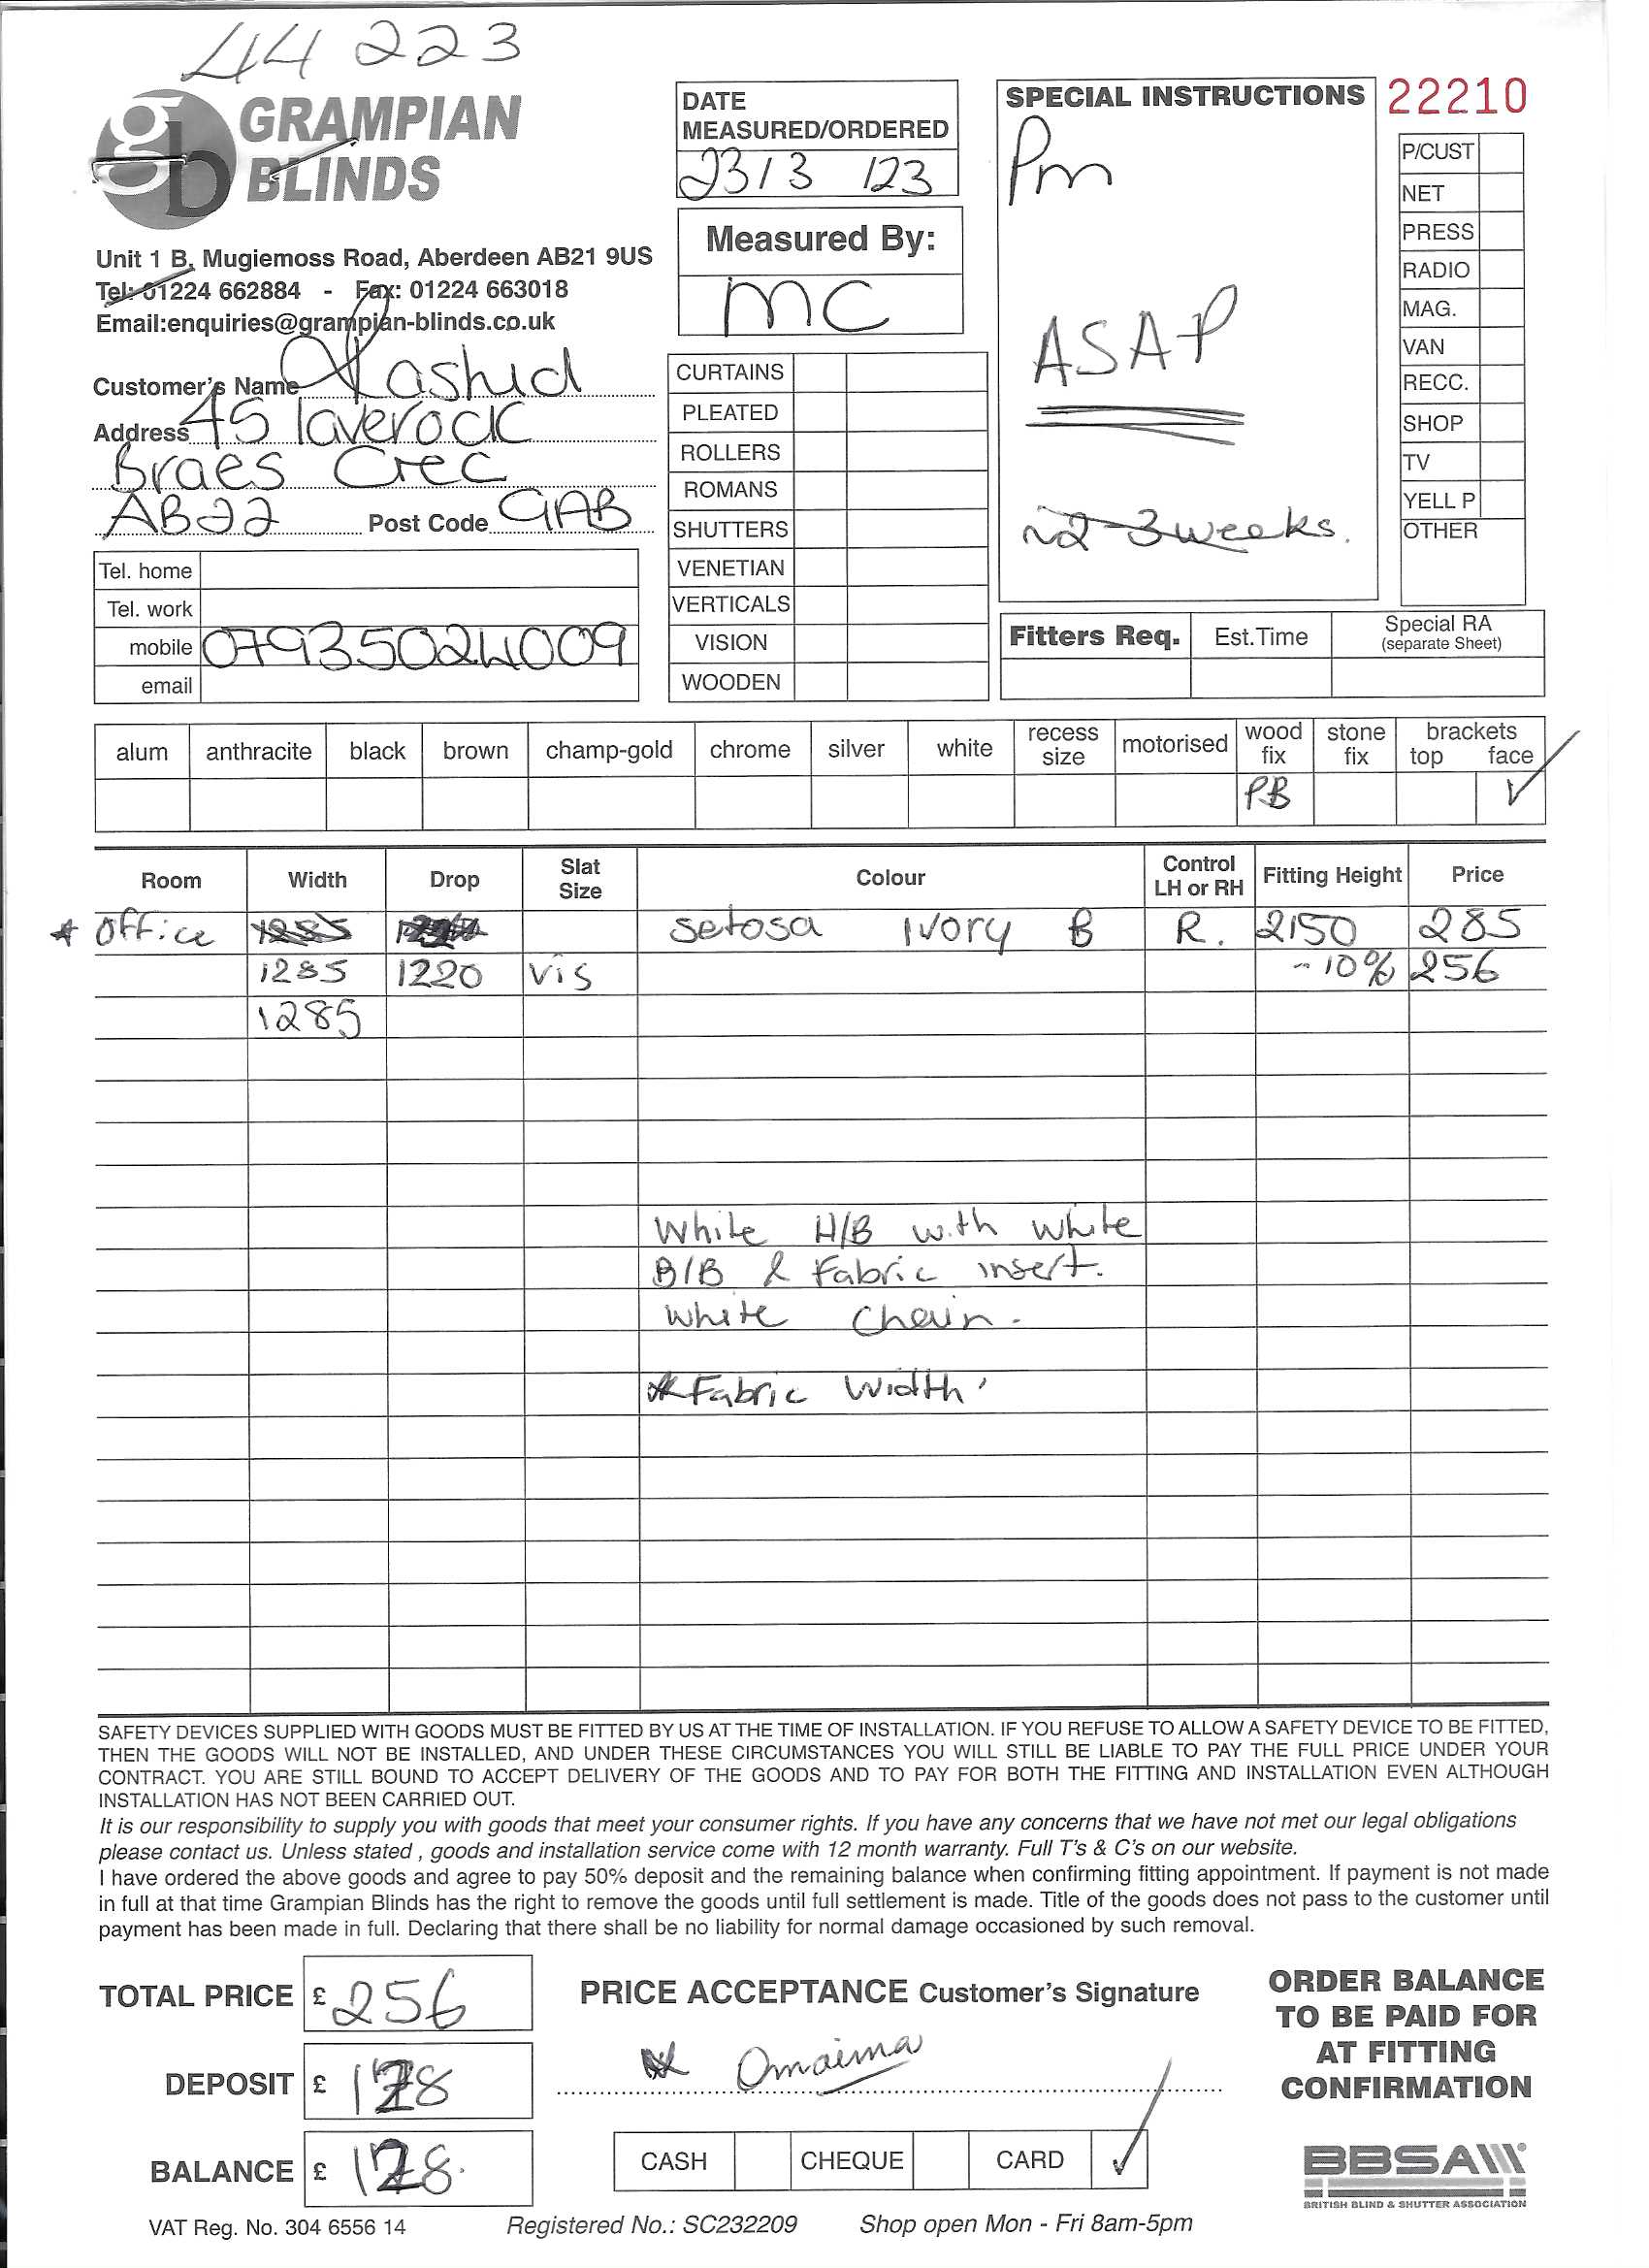 44223
GRAMPIAN
BLINDS
Unit 1 B, Mugiemoss Road, Aberdeen AB21 9US
Tel: 01224 662884 - Fax: 01224 663018
Email:enquiries@grampian-blinds.co.uk
Customer's Name Rashid
Address 45 laverock
Braes Crec
AB22 Post Code 9AB
Tel. home
Tel. work
mobile 07935024009
email
DATE
MEASURED/ORDERED
23/3/23
Measured By:
MC
CURTAINS
PLEATED
ROLLERS
ROMANS
SHUTTERS
VENETIAN
VERTICALS
VISION
WOODEN
SPECIAL INSTRUCTIONS
Pm
ASAP
~2-3 weeks.
22210
P/CUST
NET
PRESS
RADIO
MAG.
VAN
RECC.
SHOP
TV
YELL P
OTHER
Fitters Req. Est.Time Special RA
(separate Sheet)
alum anthracite black brown champ-gold chrome silver white recess size motorised wood fix stone fix brackets top face
P.B ✓
Room Width Drop Slat Size Colour Control LH or RH Fitting Height Price
* Office 1285 Setosa Ivory B R. 2150 285
1285 1220 Vis -10% 256
1285
White H/B with white
B/B & Fabric insert.
White Chain.
*Fabric Width
SAFETY DEVICES SUPPLIED WITH GOODS MUST BE FITTED BY US AT THE TIME OF INSTALLATION. IF YOU REFUSE TO ALLOW A SAFETY DEVICE TO BE FITTED,
THEN THE GOODS WILL NOT BE INSTALLED, AND UNDER THESE CIRCUMSTANCES YOU WILL STILL BE LIABLE TO PAY THE FULL PRICE UNDER YOUR
CONTRACT. YOU ARE STILL BOUND TO ACCEPT DELIVERY OF THE GOODS AND TO PAY FOR BOTH THE FITTING AND INSTALLATION EVEN ALTHOUGH
INSTALLATION HAS NOT BEEN CARRIED OUT.
It is our responsibility to supply you with goods that meet your consumer rights. If you have any concerns that we have not met our legal obligations
please contact us. Unless stated , goods and installation service come with 12 month warranty. Full T's & C's on our website.
I have ordered the above goods and agree to pay 50% deposit and the remaining balance when confirming fitting appointment. If payment is not made
in full at that time Grampian Blinds has the right to remove the goods until full settlement is made. Title of the goods does not pass to the customer until
payment has been made in full. Declaring that there shall be no liability for normal damage occasioned by such removal.
TOTAL PRICE £ 256
DEPOSIT £ 128
BALANCE £ 128.
PRICE ACCEPTANCE Customer's Signature
Omaima
CASH CHEQUE CARD ✓
ORDER BALANCE
TO BE PAID FOR
AT FITTING
CONFIRMATION
BBSA
BRITISH BLIND & SHUTTER ASSOCIATION
VAT Reg. No. 304 6556 14 Registered No.: SC232209 Shop open Mon - Fri 8am-5pm